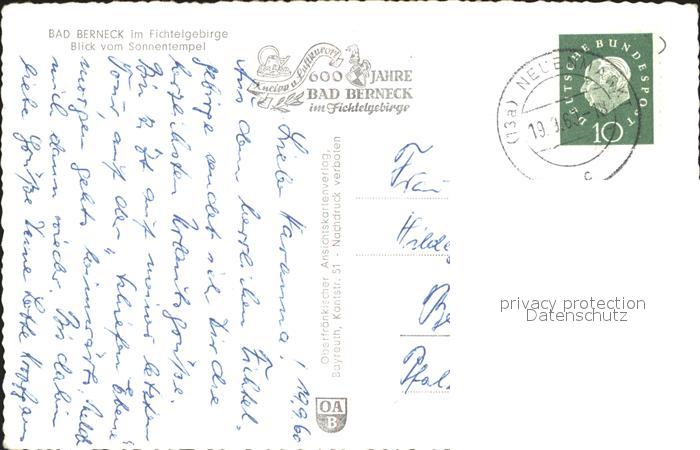 BAD BERNECK im Fichtelgebirge
Blick vom Sonnentempel
Kneipp u. Luftkurort
600 JAHRE
BAD BERNECK
im Fichtelgebirge
(13a)
19.9.60
c
DEUTSCHE BUNDESPOST
10
19.9.60
Liebe
Aus dem herrlichen Fichtel-
gebirge sendet Dir die
herzlichsten Urlaubsgrüße.
Bin z. Zt. auf meiner letzten
Tour, auf der "schiefen Ebene"
morgen gehts heimwärts,
mich dann wieder. Bis dahin
liebe Grüße Deine Lotte
Oberfränkischer Ansichtskartenverlag,
Bayreuth, Kantstr. 51 - Nachdruck verboten
OA
B
Frau
Hilde
Pfal
privacy protection
Datenschutz